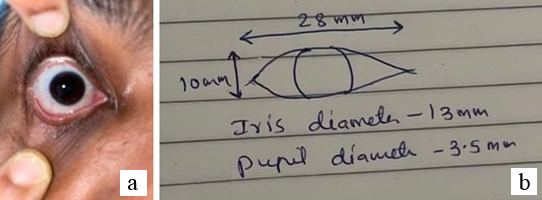 28mm
10mm
Iris diameter - 13mm
pupil diameter - 3.5mm
a
b